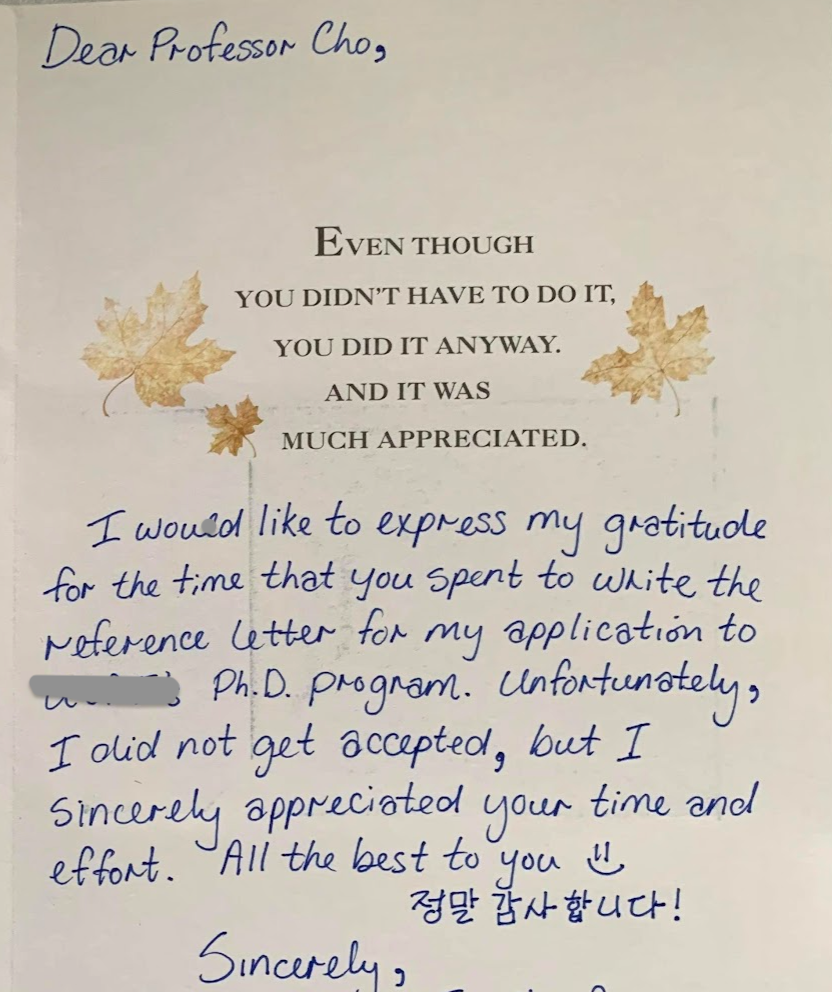 Dear Professor Cho,
EVEN THOUGH
YOU DIDN'T HAVE TO DO IT,
YOU DID IT ANYWAY.
AND IT WAS
MUCH APPRECIATED.
I would like to express my gratitude
for the time that you spent to write the
reference letter for my application to
Ph.D. program. Unfortunately,
I did not get accepted, but I
sincerely appreciated your time and
effort. All the best to you
정말 감사합니다!
Sincerely,